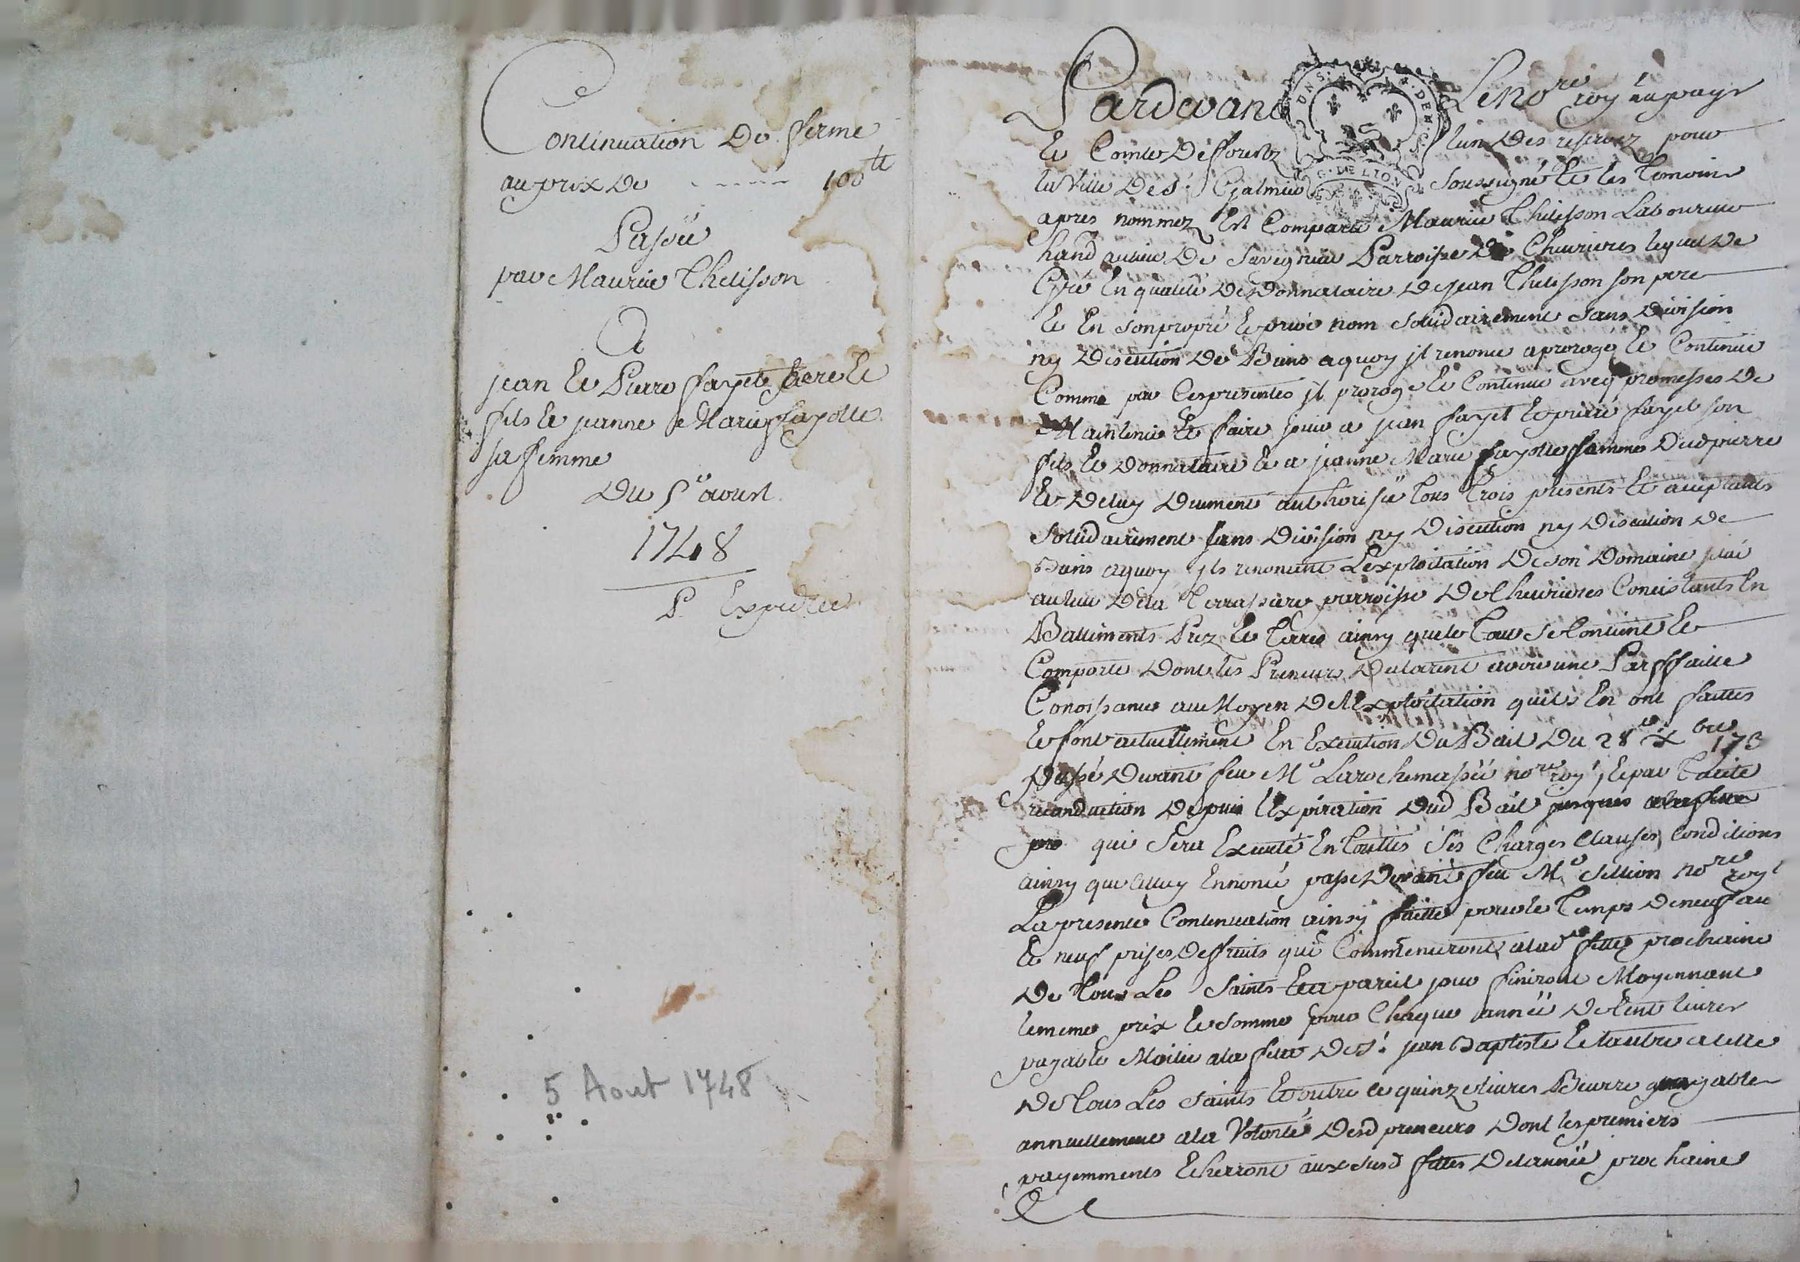 Continuation De fferme
au prix De ----- 100 tt
Passée
par Maurice Thelisson
A
jean Et Pierre ffayet pere Et
fils Et jeanne Marie ffayolle
sa ffemme
Du 5e aoust
1748
P. Expediée
5 Aout 1748
Pardevant Le nore roy au pays
Et Comté De fforestz lun Des reservez pour
la Ville De St Galmier soussigné Et les temoins
apres nommez Est Comparu Maurice Thelisson Laboureur
habitant au lieu De Savigneu Parroisse De Chevrieres lequel De
Gré En qualité De Donnataire De jean Thelisson son pere
Et En son propre Et privé nom solidairement sans Division
ny Discution De Biens aquoy il renonce a prorogé Et Continué
Comme par Ces presentes il proroge Et Continue avec promesses De
Maintenir Et faire jouir a jean ffayet Et pierre ffayet son
fils Et Donnataire Et a jeanne Marie ffayolle ffemme Dud pierre
Et De luy Duement authorisée tous trois presents Et acceptants
solidairement sans Division ny Discution De
Biens aquoy ils renoncent Lexploitation De son Domaine situé
au lieu De la Terrassiere parroisse De Chevrieres Concistants En
Battiments Prez Et terres ainsy que le tout se Contient Et
Comporte Dont les Preneurs Declarent avoir une Parffaitte
Conoissance au Moyen De LExploitation quils En ont faittes
Et font actuellement En Execution Du Bail Du 28e Xbre 173
Passé Devant feu Me Larochemassée nore roy Et par tacite
reconduction Depuis lExpiration Dud Bail
qui sera Executé En touttes ses Charges Clauses Conditions
ainsy que Celuy Ennoncé passé Devant feu Me sillion nore royl
La presente Continuation ainsy faitte pour le temps De neuf an
Et neuf prises De ffruits qui Commenceront a lad fette prochaine
De tous Les Saints Et a pareil jour finiront Moyennant
le meme prix Et somme pour Chaque année De Cent livres
payable Moitié a la fette De St jean Baptiste Et lautre a Celle
De tous Les Saints Et outre ce quinze livres Beurre payable
annuellement a la Volonté Desd preneurs Dont les premiers
payemments Echerront aux susd fettes De lannée prochaine